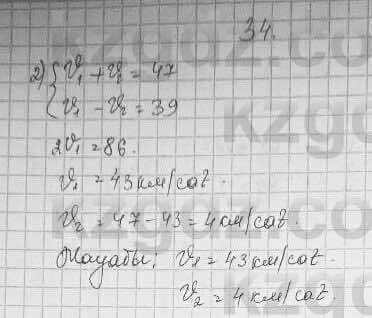 34.
2) { v₁ + v₂ = 47
v₁ - v₂ = 39
2v₁ = 86.
v₁ = 43 км/сағ.
v₂ = 47-43 = 4 км/сағ.
Жауабы: v₁ = 43 км/сағ.
v₂ = 4 км/сағ.